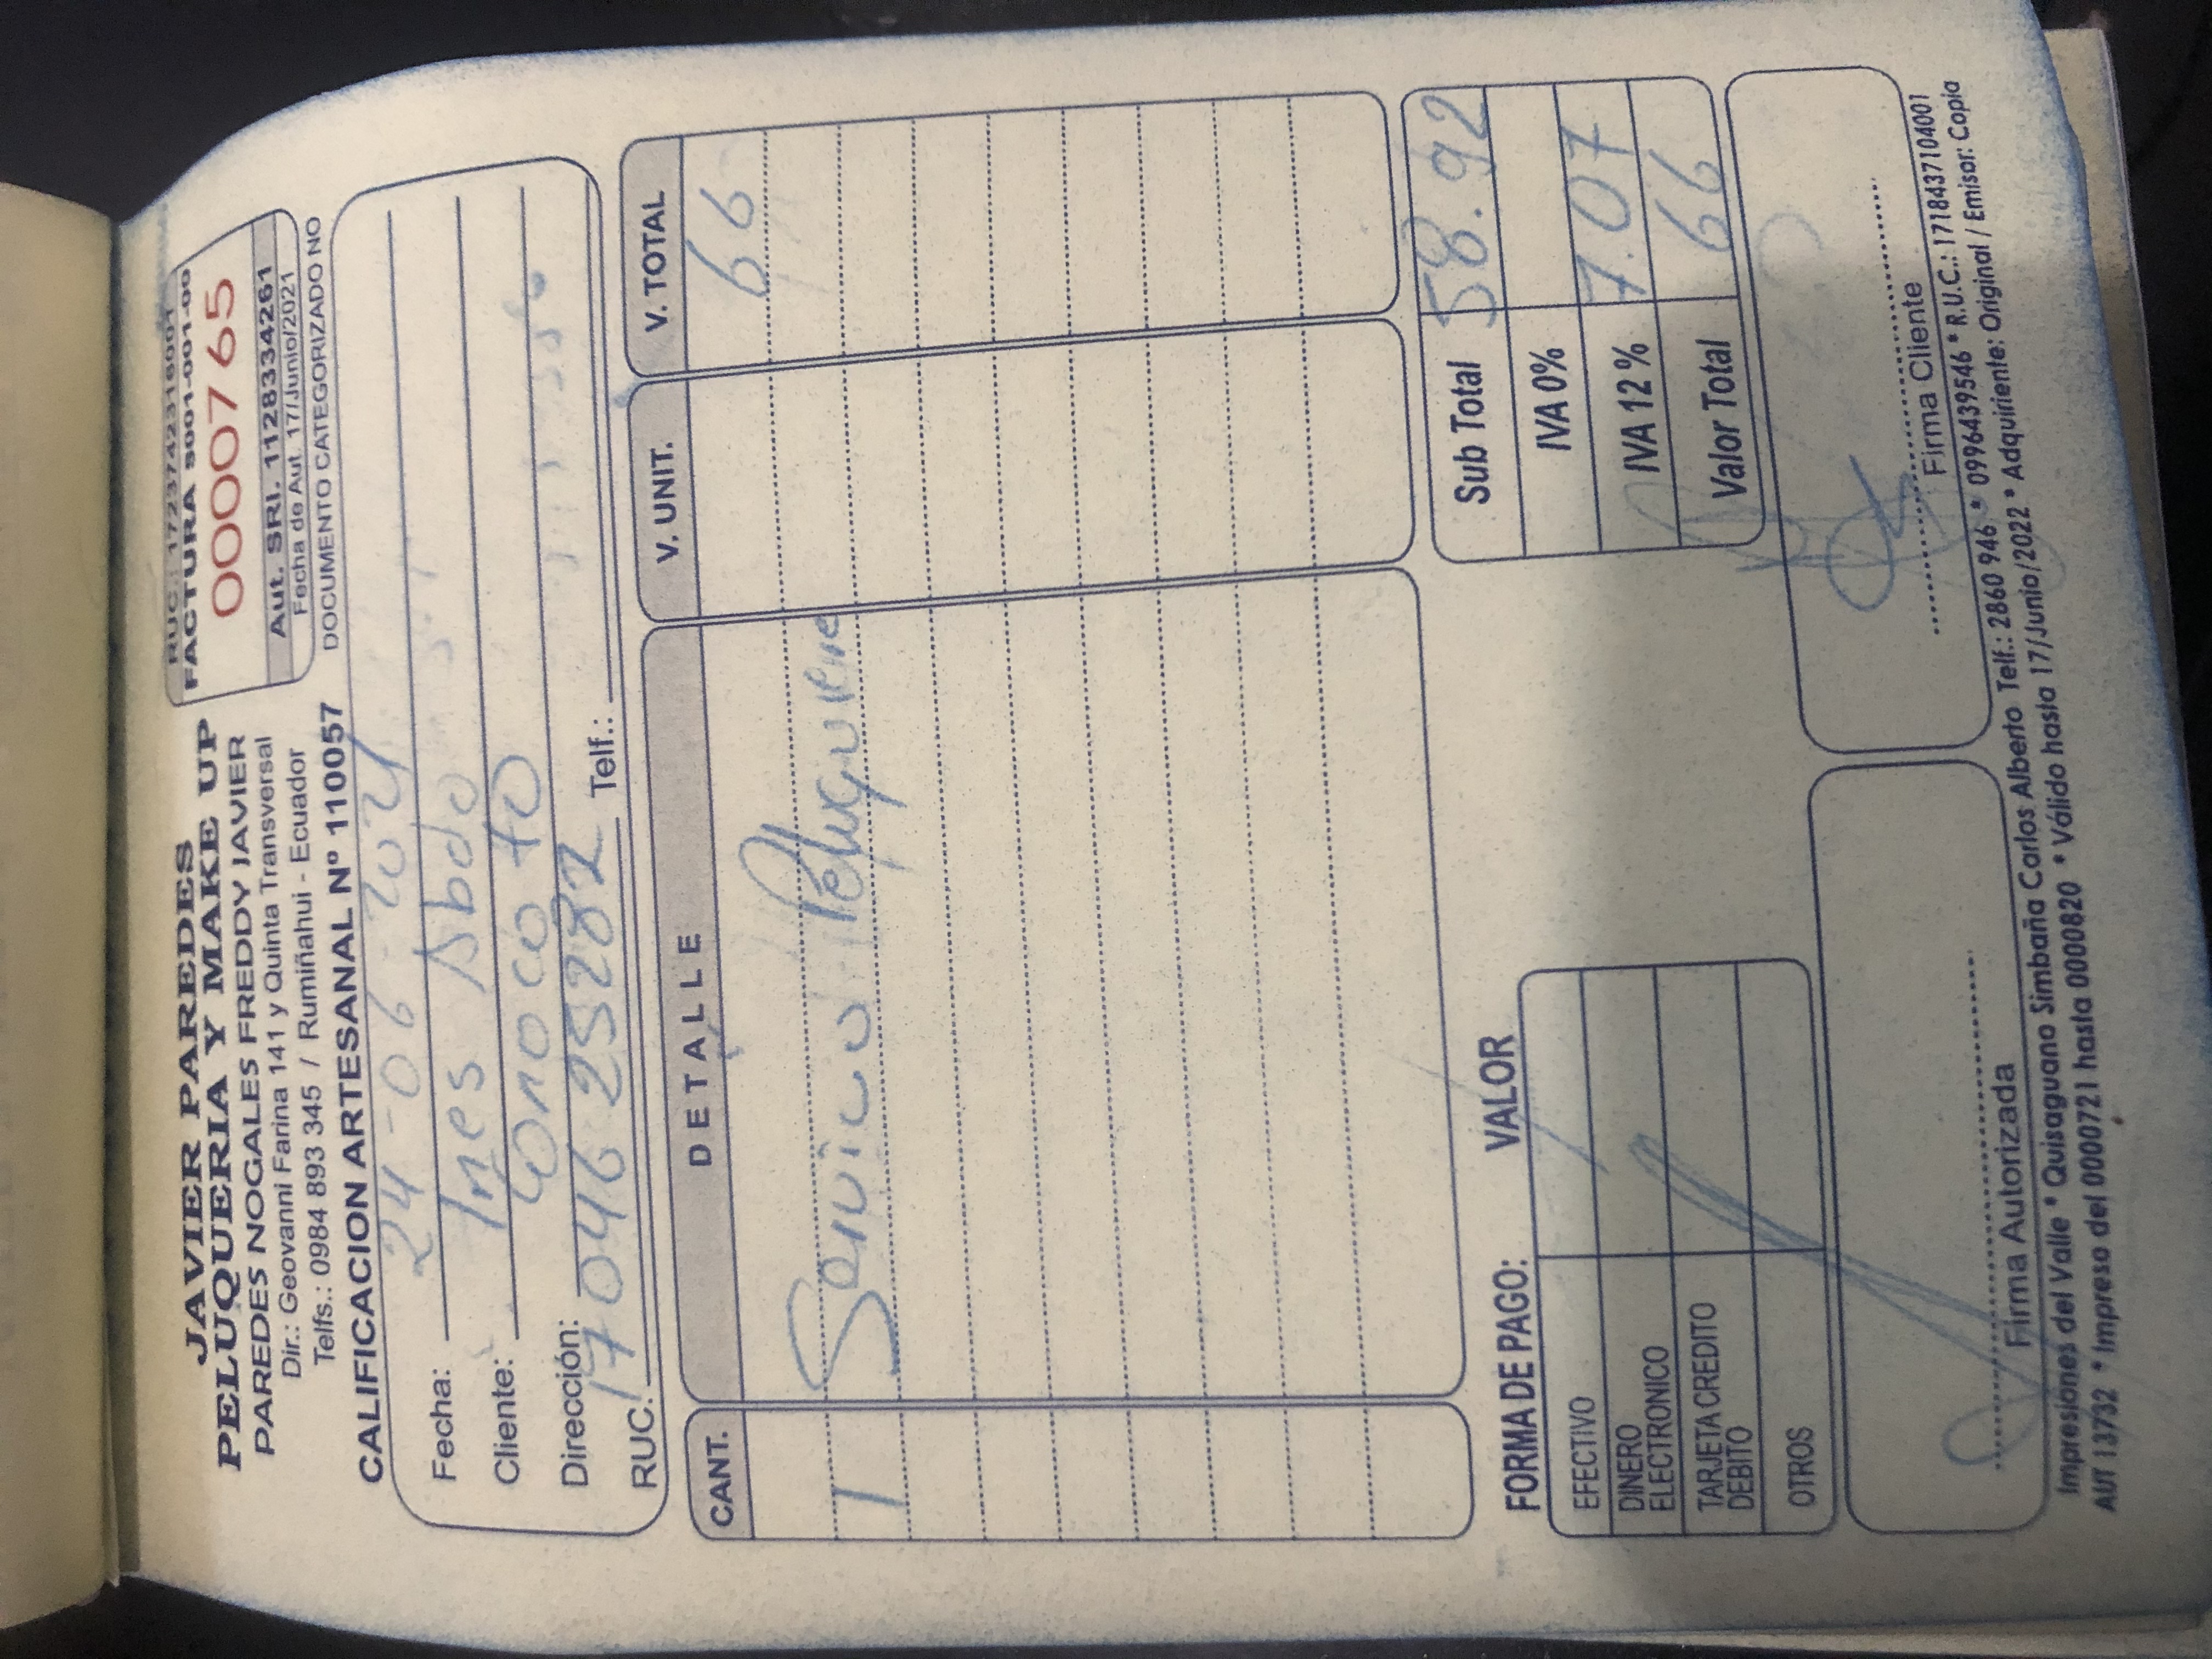 JAVIER PAREDES
PELUQUERIA Y MAKE UP
PAREDES NOGALES FREDDY JAVIER
Dir.: Geovanni Farina 141 y Quinta Transversal
Telfs.: 0984 893 345 / Rumiñahui - Ecuador
CALIFICACION ARTESANAL Nº 110057
RUC.: 1723742316001
FACTURA S001-001-00
0000765
Aut. SRI. 1128334261
Fecha de Aut. 17/Junio/2021
DOCUMENTO CATEGORIZADO NO
Fecha: 24-06-2021
Cliente: Ines Abdo
Dirección: Conocoto
RUC: 1704625282 Telf.:
CANT. DETALLE V. UNIT. V. TOTAL
66
1 Servicio
Sub Total 58.92
IVA 0%
IVA 12% 7.07
Valor Total 66
FORMA DE PAGO: VALOR
EFECTIVO
DINERO
ELECTRONICO
TARJETA CREDITO
DEBITO
OTROS
Firma Autorizada
Firma Cliente
Impresiones del Valle * Quisaguano Simbaña Carlos Alberto Telf.: 2860 946 * 0996439546 * R.U.C.: 1718437104001
AUT 13732 * Impreso del 0000721 hasta 0000820 * Válido hasta 17/Junio/2022 * Adquiriente: Original / Emisor: Copia